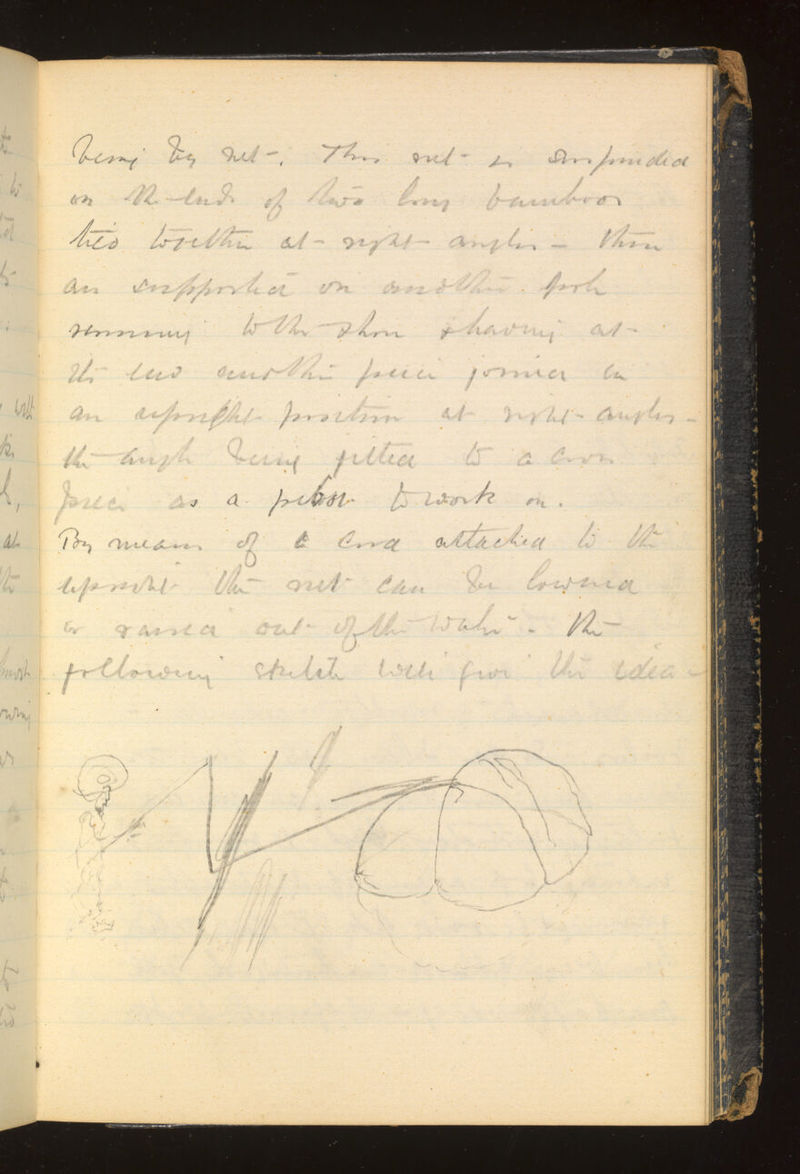 being by net. This net is suspended
on the ends of two long bamboos
tied together at right angles - these
are supported on another pole
running to the shore & having at
its end another piece joined in
an upright position at right angles -
the angle being fitted to a cross
piece as a pivot to work on.
By means of a cord attached to the
upright the net can be lowered
or raised out of the water - the
following sketch will give the idea -